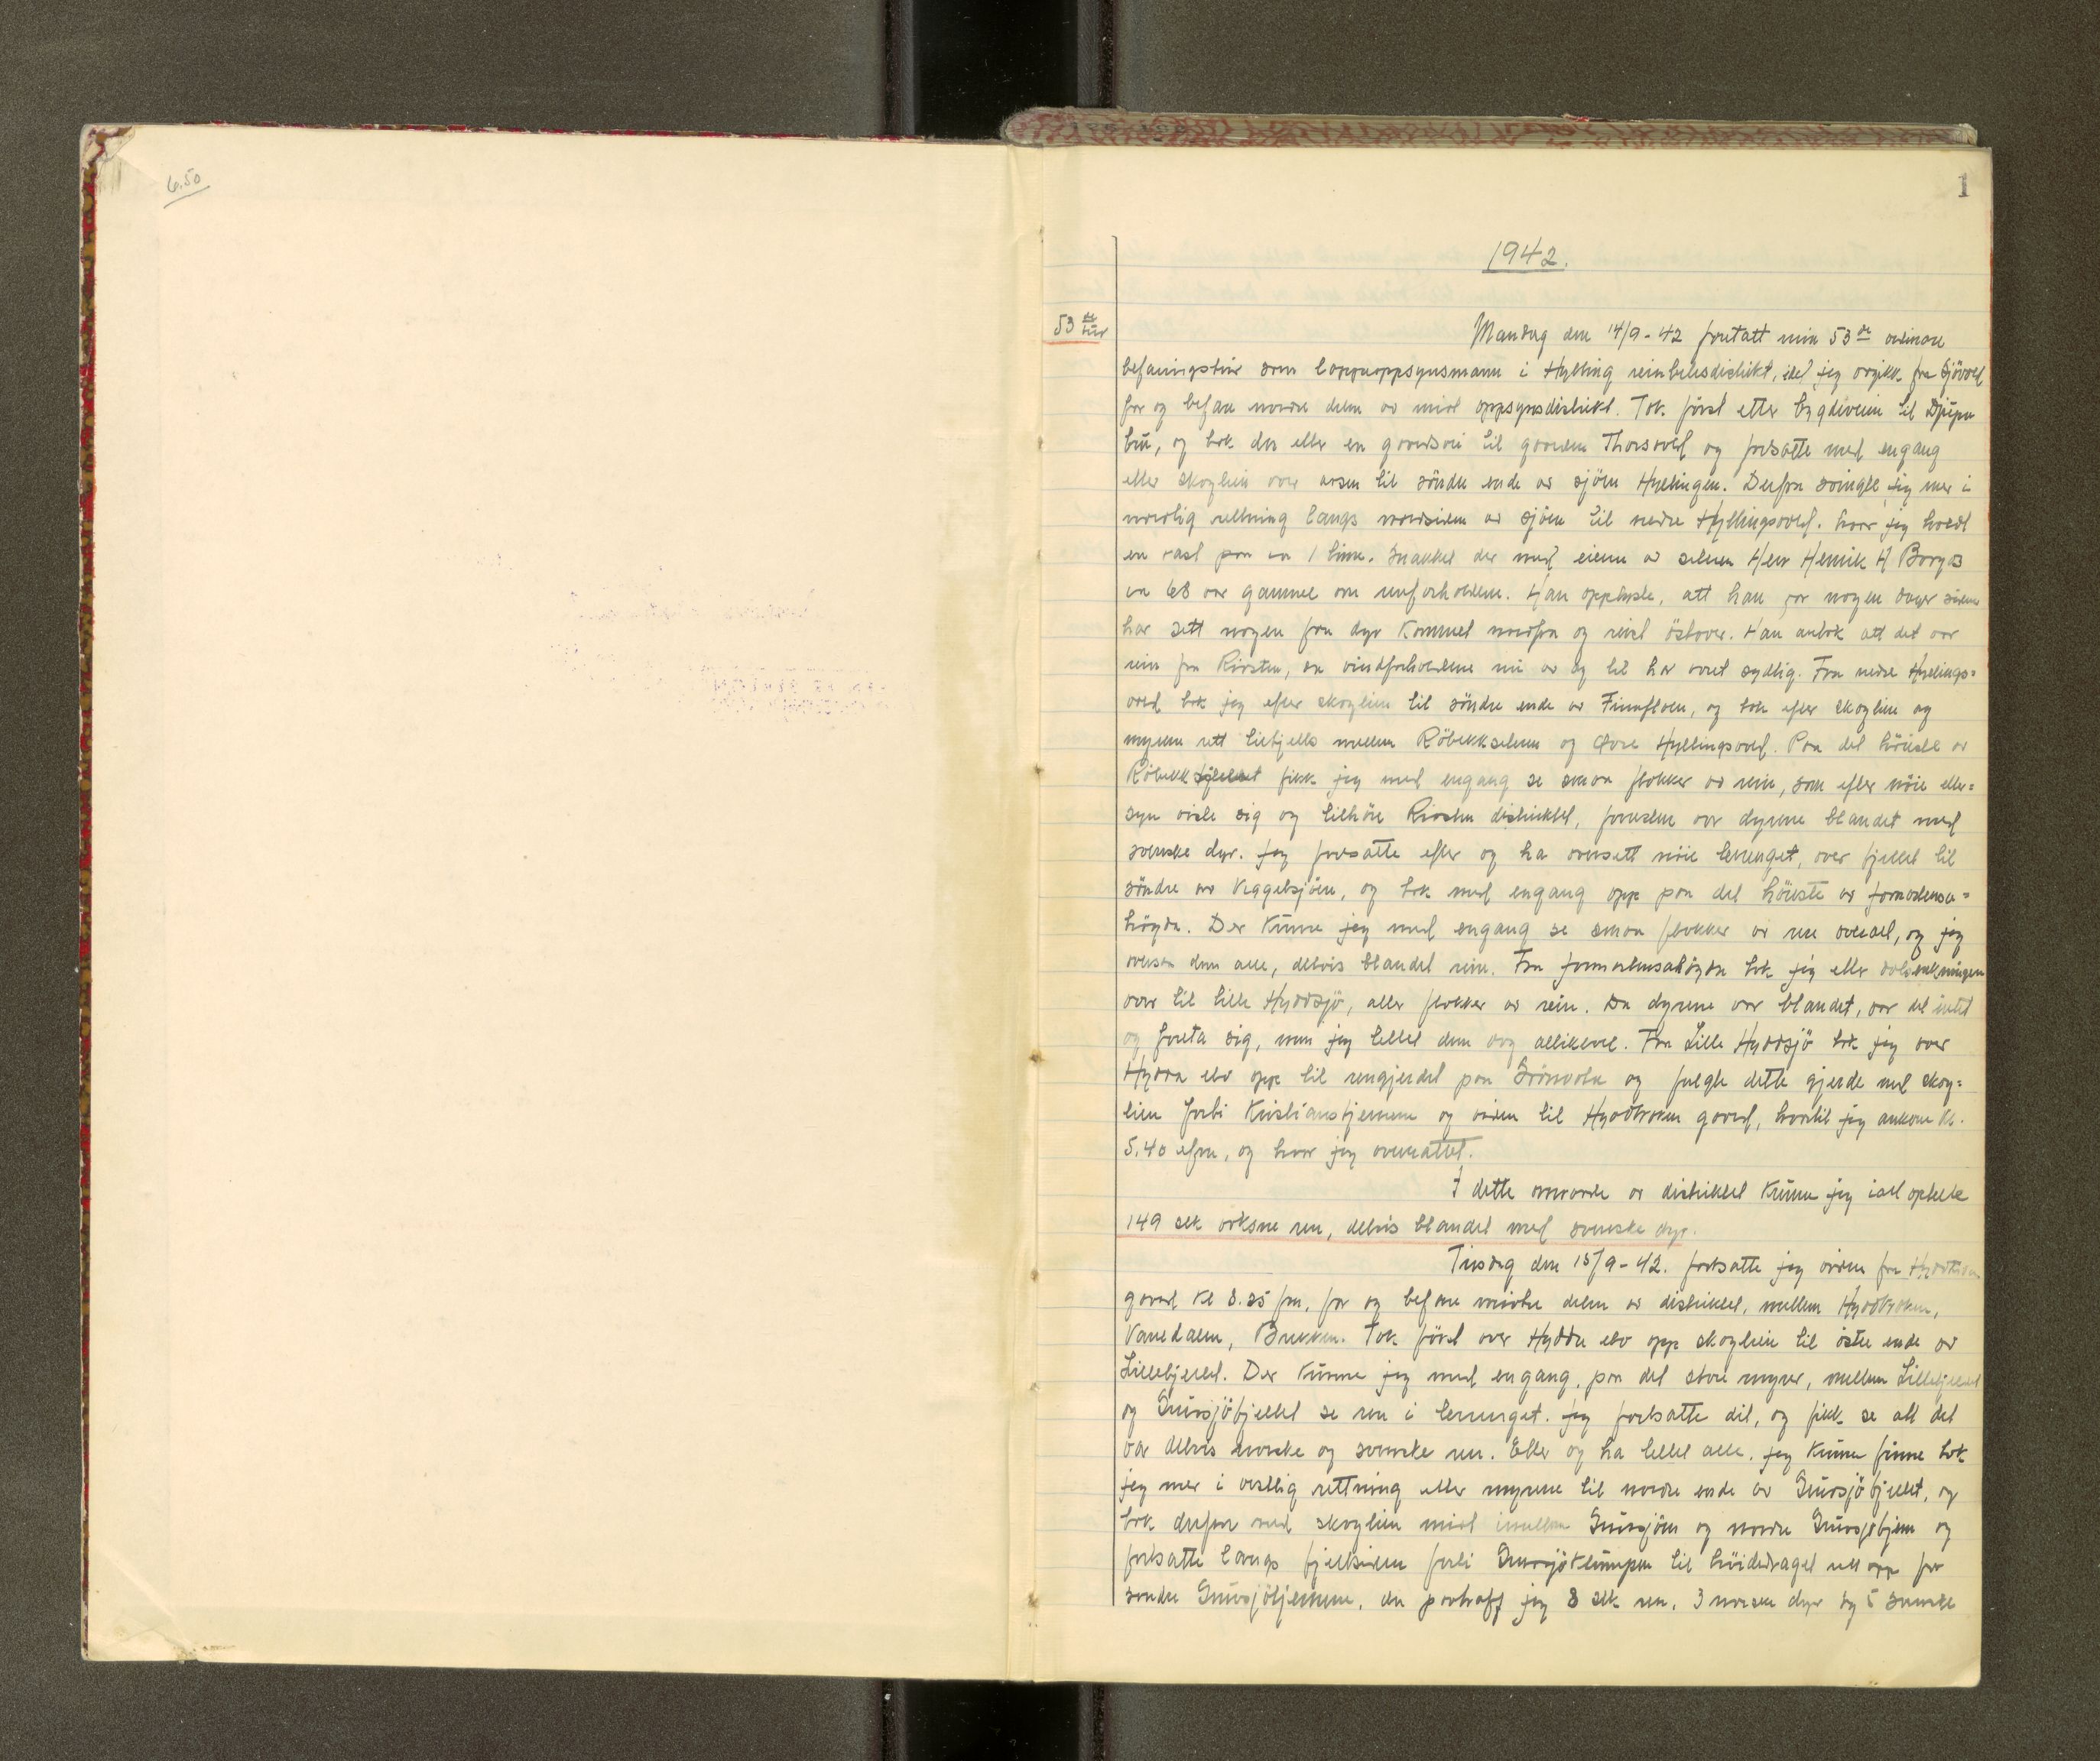 6.50
1
1942.
53 de tur
Mandag den 14/9-42 foretatt min 53 de ordinære
befaringstur som lappoppsynsmann i Hylling reinbetesdistrikt, idet jeg avgikk fra Sjövold
for og befare nordre delen av mitt oppsynsdistrikt. Tok först etter bygdeveien til Djupu
bru, og tok der etter en gaardsvei til gaarden Thorsvold og fortsatte med engang
etter skoglien over aasen til söndre ende av sjöen Hyllingen. Derfra svingte jeg mer i
nordlig rettning langs nordsiden av sjöen til nedre Hyllingsvold. hvor jeg hvedt
en rast paa ca 1 time. Snakket der med eieren av setren Herr Henrik H Borgos
ca 68 aar gammel om renforholdene. Han opplyste, att han for nogen dager siden
har sett nogen faa dyr kommet nordfra og reist östover. Han antok att det var
rein fra Riasten, da vindforholdene nu av og til har vært sydlig. Fra nedre Hyllings=
vold tok jeg efter skoglien til söndre ende av Finnfloen, og tok efter skoglien og
myren rett tilfjells mellem Röbekksetren og Øvre Hyllingsvold. Paa det höieste av
Röbekkfjellet fikk jeg med engang se smaa flokker av rein, som efter nöie etter=
syn viste sig og tilhöre Riasten distriktet, foruten var dyrene blandet med
svenske dyr. Jeg fortsatte efter og ha oversett nöie terrenget, over fjellet til
söndre av Viggelsjöen, og tok med engang opp paa det höieste av
högda. Der kunne jeg med engang se smaa flokker av ren overalt, og jeg
oversaa dem alle, delvis blandet rein. Fra tok jeg etter
over til lille Hyddsjö, aller flokker av rein. Da dyrene var blandet, var det intet
og foreta sig, men jeg tellet dem dog allikevel. Fra Lille Hyddsjö tok jeg over
Hydda elv opp til rengjerdet paa Grönvola og fulgte dette gjerde ned skog=
lien forbi Kristianstjernene og viden til Hyddkroken gaard, hvortil jeg ankom kl.
5.40 efm, og hvor jeg overnattet.
I dette omraade av distriktet kunne jeg ialt optelle
149 stk voksne ren, delvis blandet med svenske dyr.
Tirsdag den 15/9-42. fortsatte jeg viden fra Hyddkroken
gaard kl 8.25 fm, for og befare midtre delen av distriktet, mellem Hyddkroken,
Vauldalen, Brekken. Tok först over Hydda elv opp skoglien til östre ende av
Lillefjellet. Der kunne jeg med engang, paa det store myrer, mellem Lillefjellet
og Gruvsjöfjellet se ren i terrenget. Jeg fortsatte dit, og fikk se att det
var delvis norske og svenske ren. Etter og ha tellet alle, jeg kunne finne tok
jeg mer i vestlig rettning etter myrene til nordre ende av Gruvsjöfjellet, og
tok derfra ned skoglien midt imellem Gruvsjöen og nordre Gruvsjötjern og
fortsatte langs fjellsiden forbi Gruvsjöklumpen til höidedraget rett opp for
söndre Gruvsjötjernene, der paatraff jeg 8 stk ren, 3 norske dyr og 5 svenske